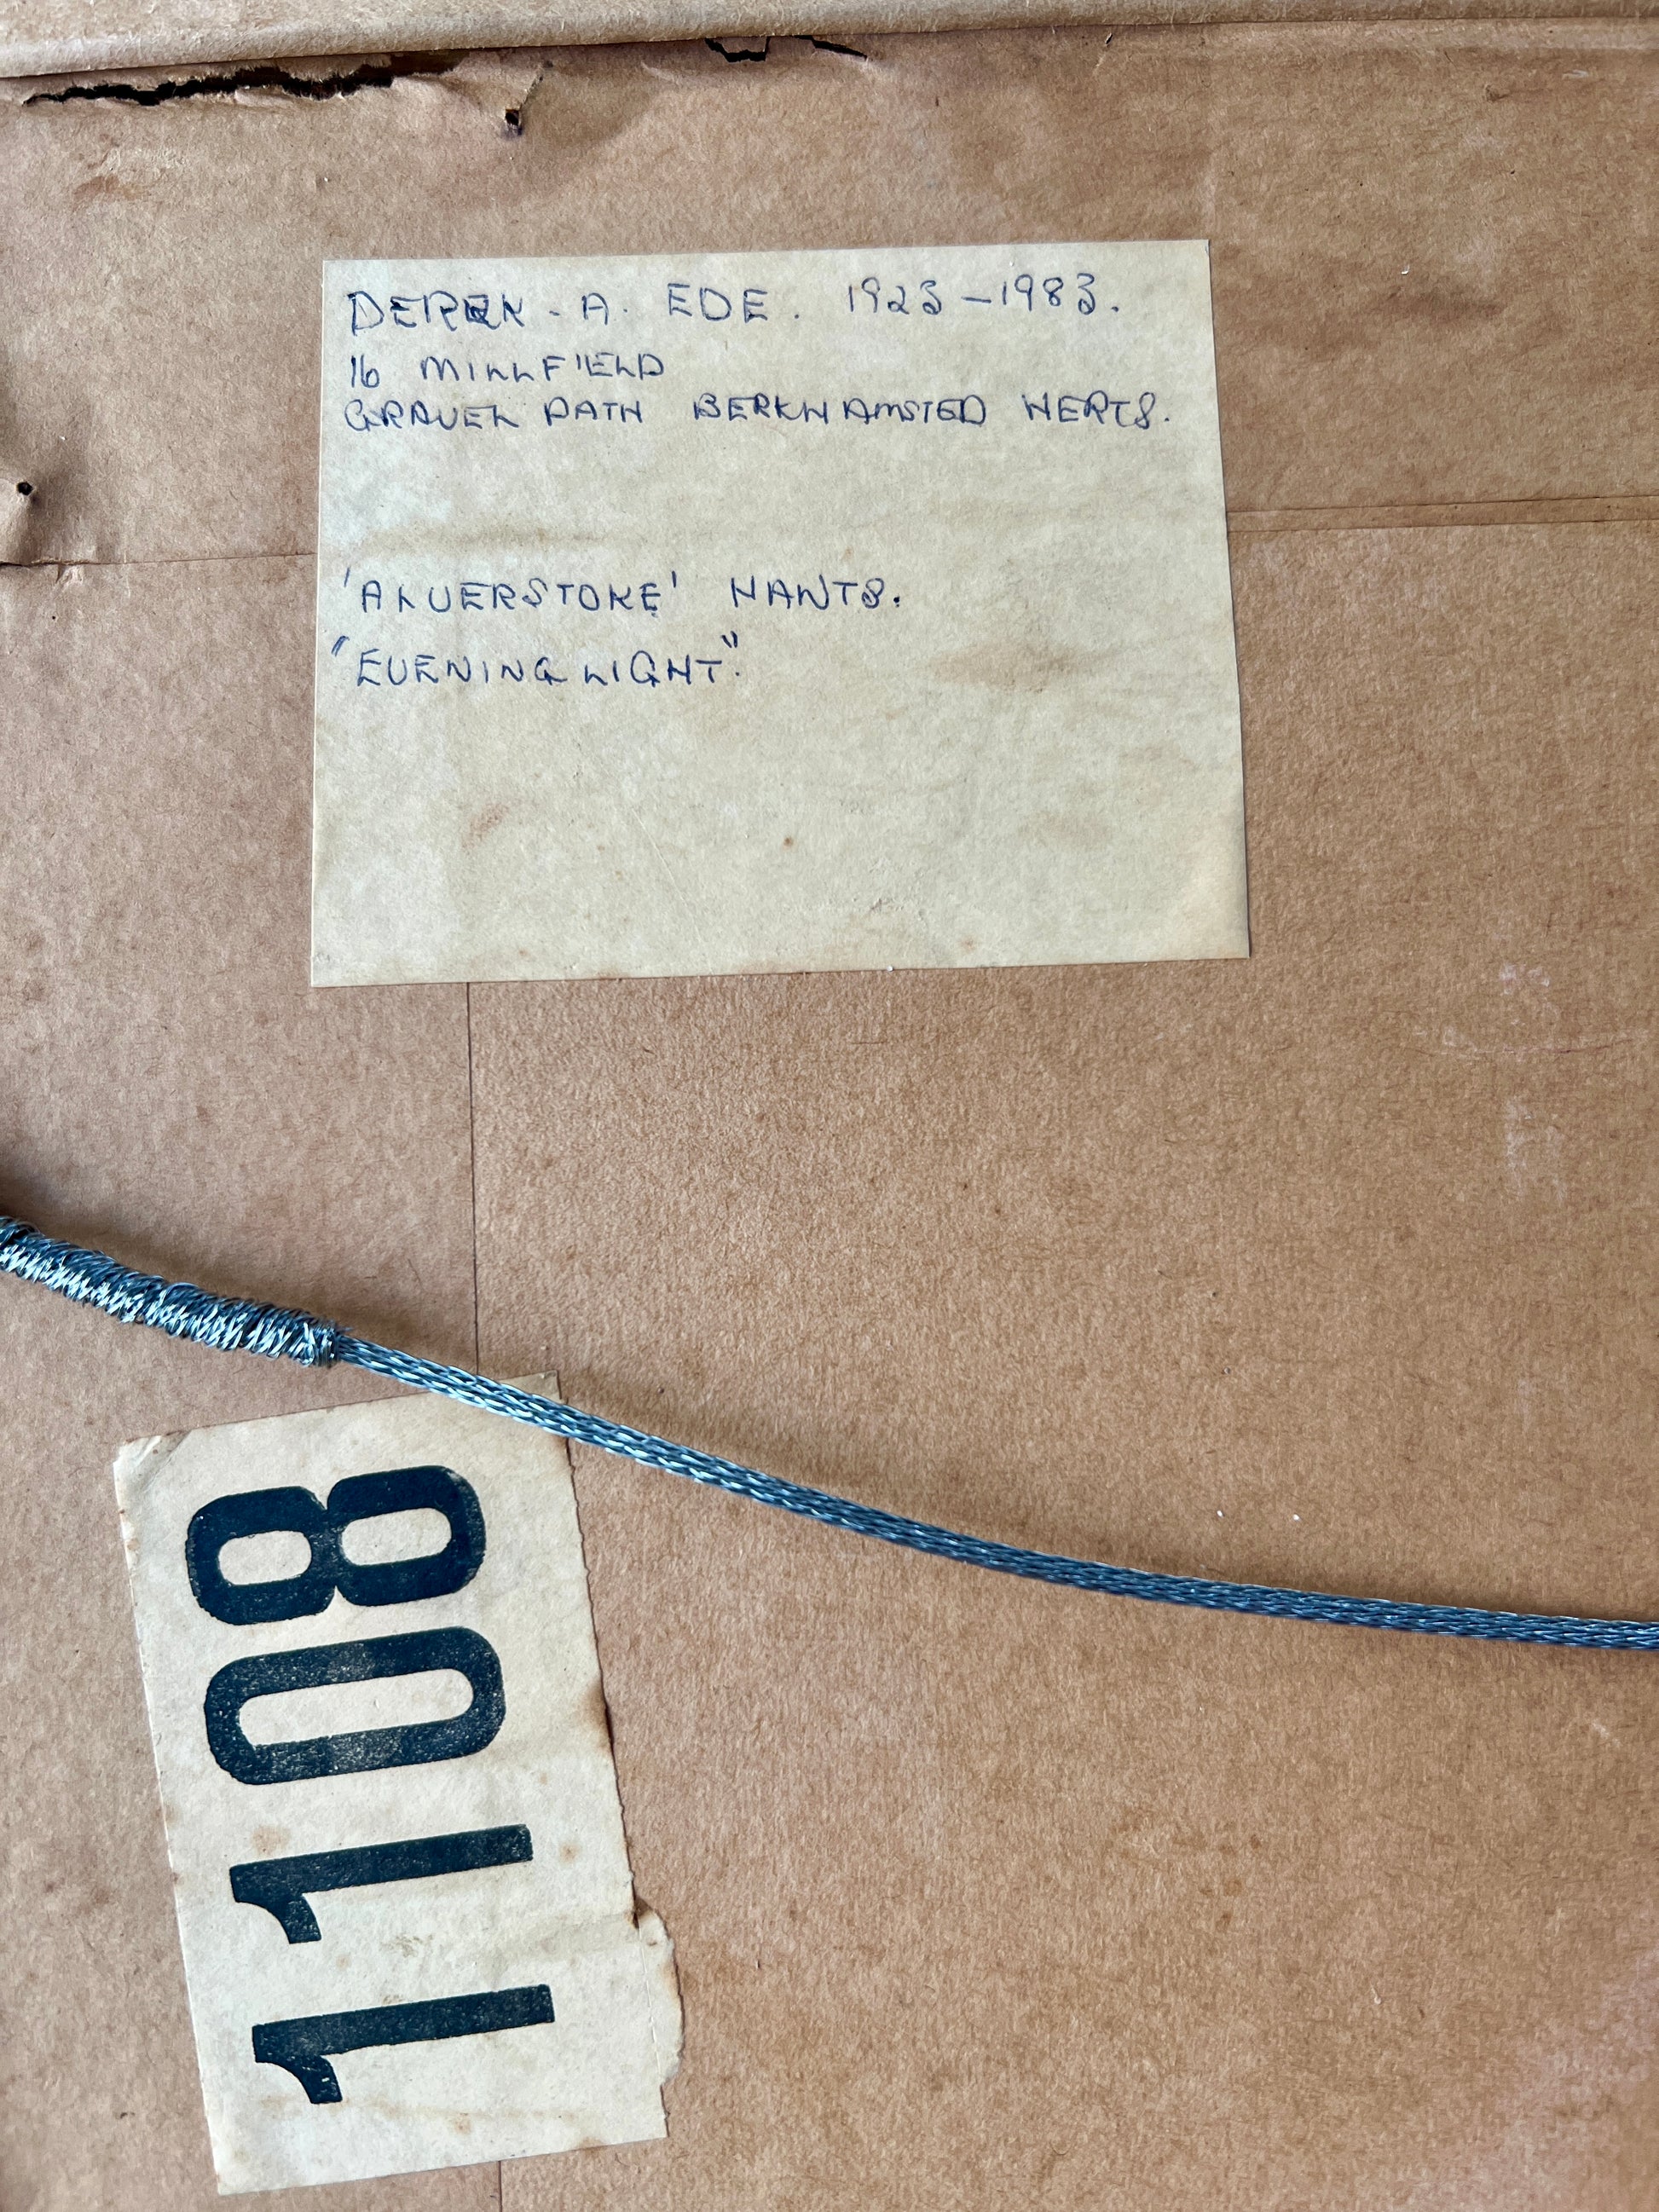 DEREK - A. EDE. 1923 - 1983.
16 MILLFIELD
GRAVEL PATH BERKHAMSTED HERTS.
'ALVERSTOKE' HANTS.
"EVENING LIGHT".
1108